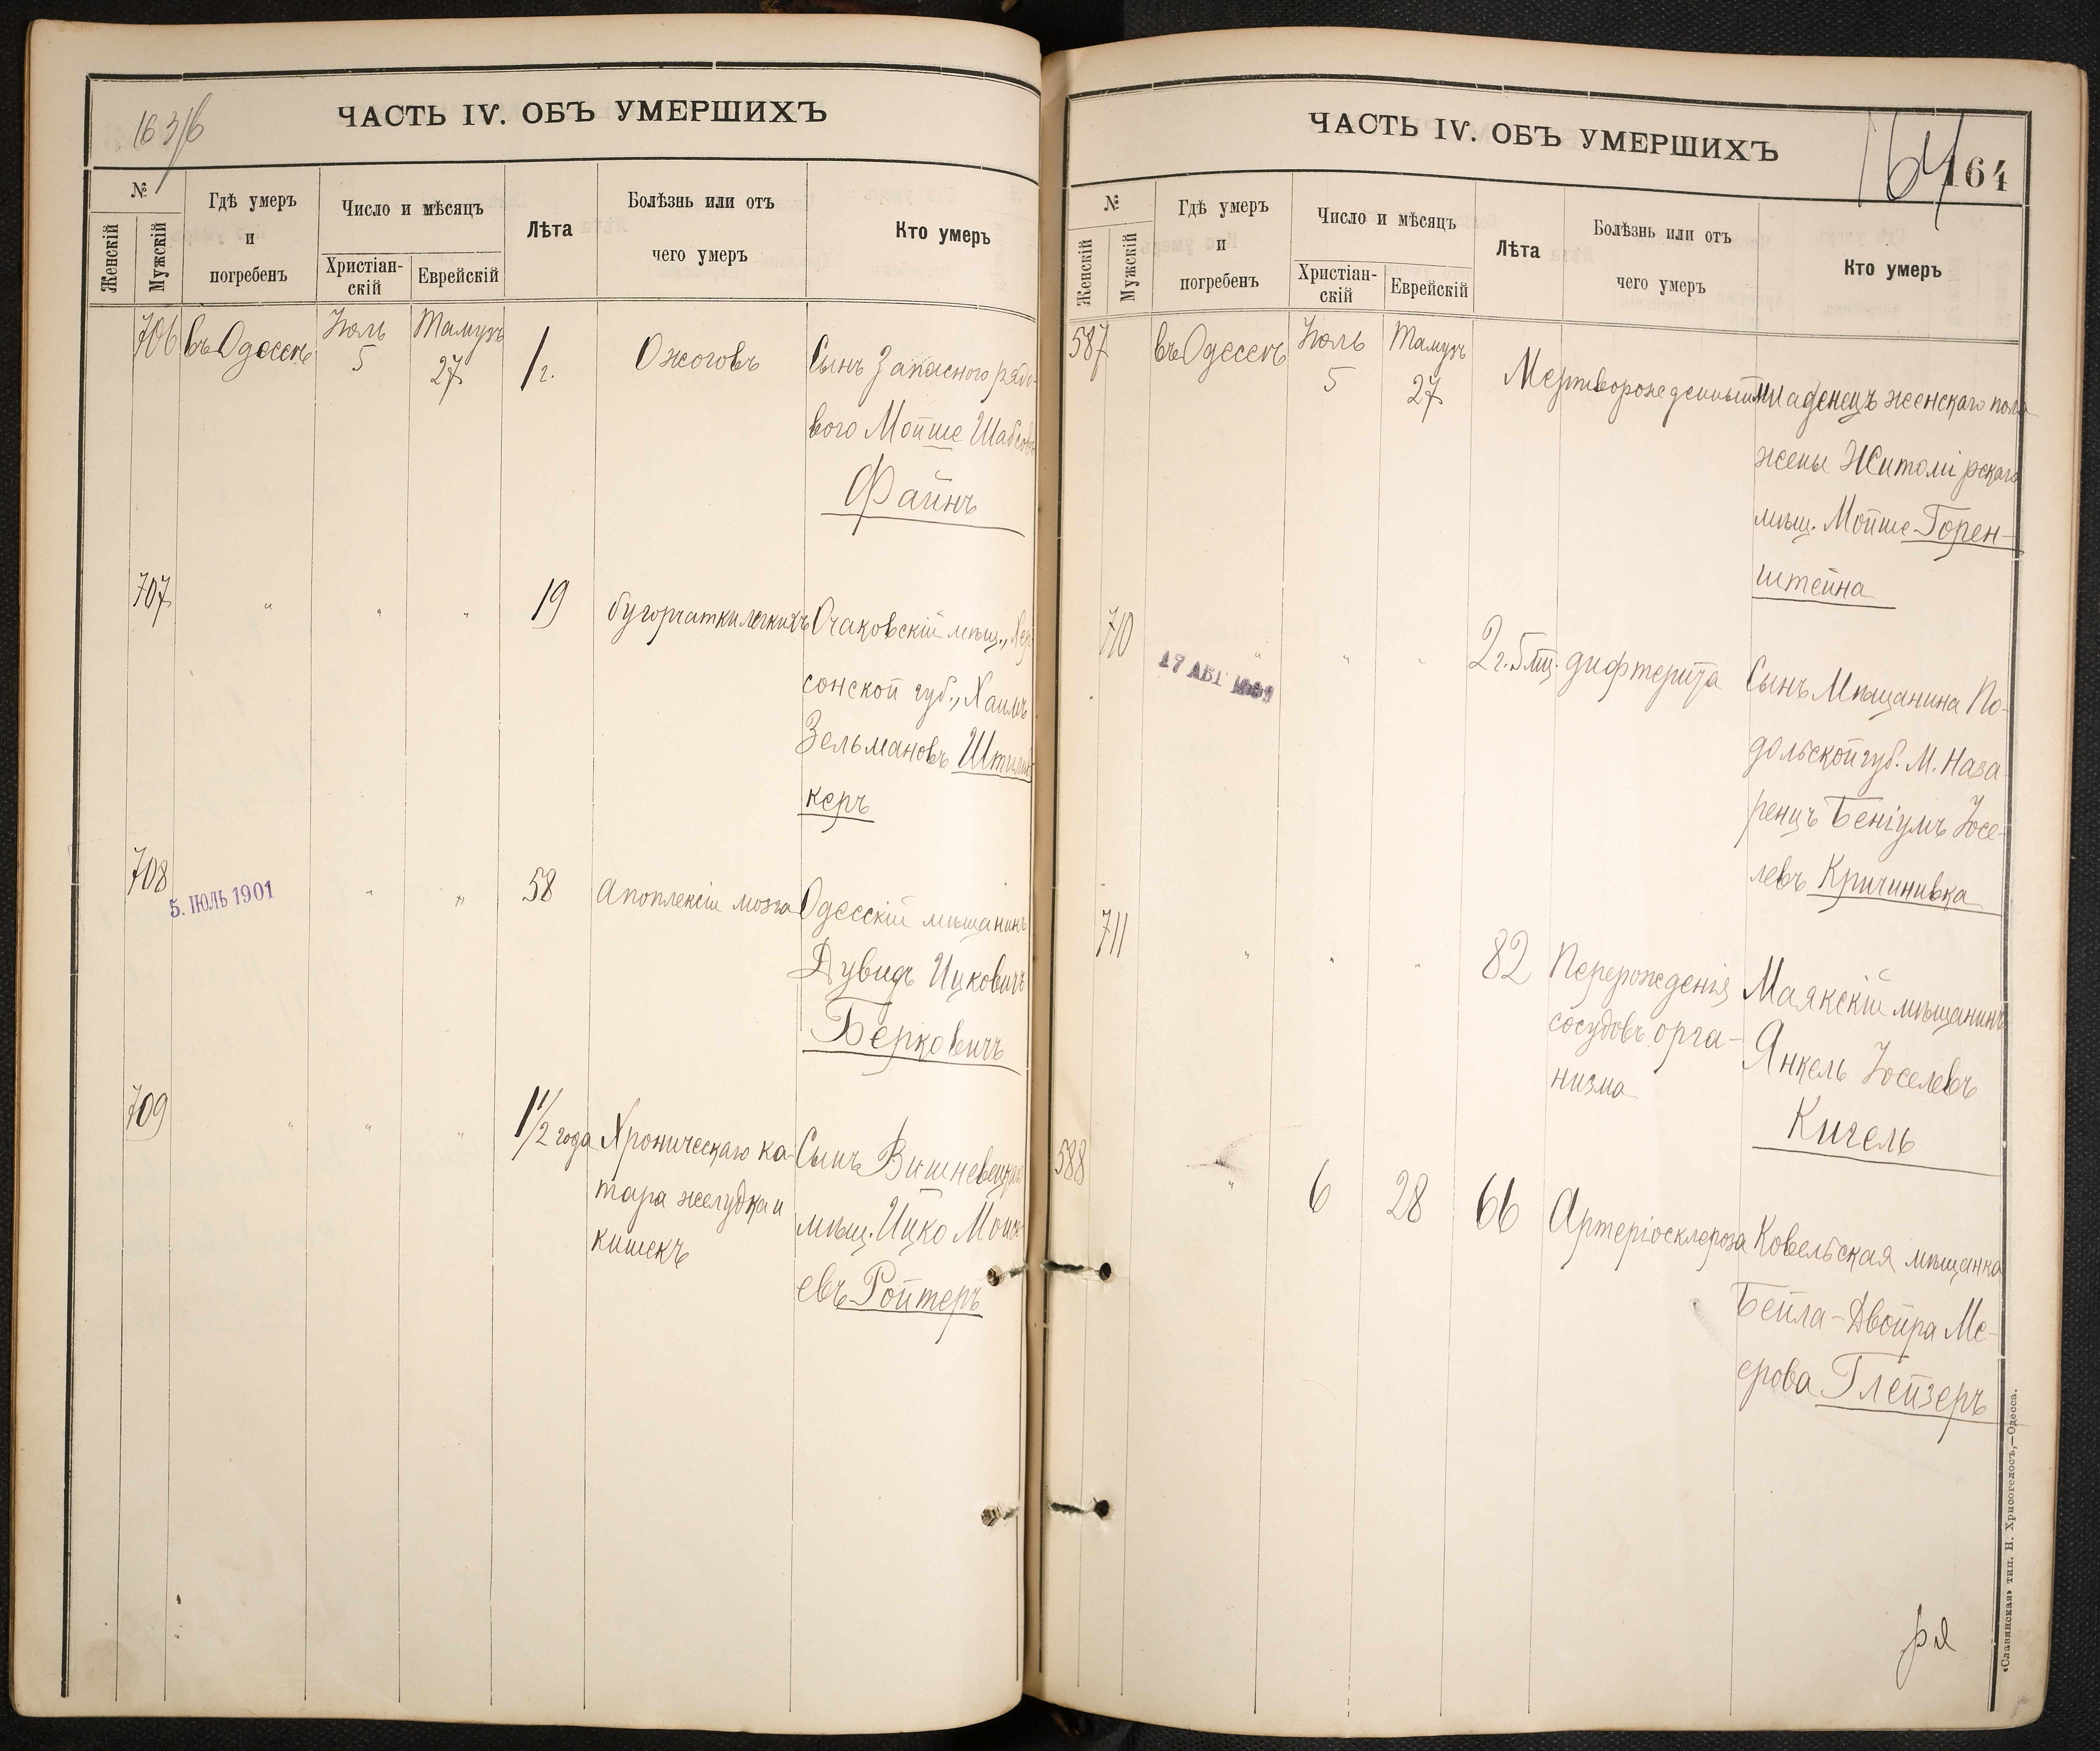 163/б
ЧАСТЬ IV. ОБЪ УМЕРШИХЪ
№
Женскій
Мужскій
Гдѣ умеръ
и
погребенъ
Число и мѣсяцъ
Христіан-
скій
Еврейскій
Лѣта
Болѣзнь или отъ
чего умеръ
Кто умеръ
706
въ Одессѣ
Іюль
5
Тамузъ
27
1 г.
Ожоговъ
Сынъ Запасного рядо-
вого Мойше Шабсовъ
Файнъ
707
"
"
"
19
бугорчатки легкихъ
Очаковскій мѣщ., Хер-
сонской губ., Хаимъ
Зельмановъ
керъ
708
5. ІЮЛЬ 1901
"
"
58
Апоплексіи мозга
Одесскій мѣщанинъ
Дувидъ Ицковичъ
Берковичъ
709
"
"
"
1 1/2 года
Хроническаго ка-
тара желудка и
кишекъ
Сынъ Вишневецкій
мѣщ. Ицко
евъ Ройтеръ
ЧАСТЬ IV. ОБЪ УМЕРШИХЪ
164
164
№
Женскій
Мужскій
Гдѣ умеръ
и
погребенъ
Число и мѣсяцъ
Христіан-
скій
Еврейскій
Лѣта
Болѣзнь или отъ
чего умеръ
Кто умеръ
587
въ Одессѣ
Іюль
5
Тамузъ
27
Мертворожденный
младенецъ женскаго пола
жены Житомірскаго
мѣщ. Мойше Горен-
штейна
710
17 АВГ
"
"
"
2 г. 5 мц.
дифтерита
Сынъ Мѣщанина По-
дольской губ. М. Наза-
ренцъ Беніумъ Іосе-
левъ Кричинивка
711
"
"
"
82
Перерожденія
сосудовъ орга-
низма
Маякскій мѣщанинъ
Янкель Іоселевъ
Кигель
588
"
6
28
66
Артеріосклероза
Ковельская мѣщанка
Бейла-Двойра Ме-
ерова Глейзеръ
«Славянская» тип. Н. Хрисогелосъ,—Одесса.